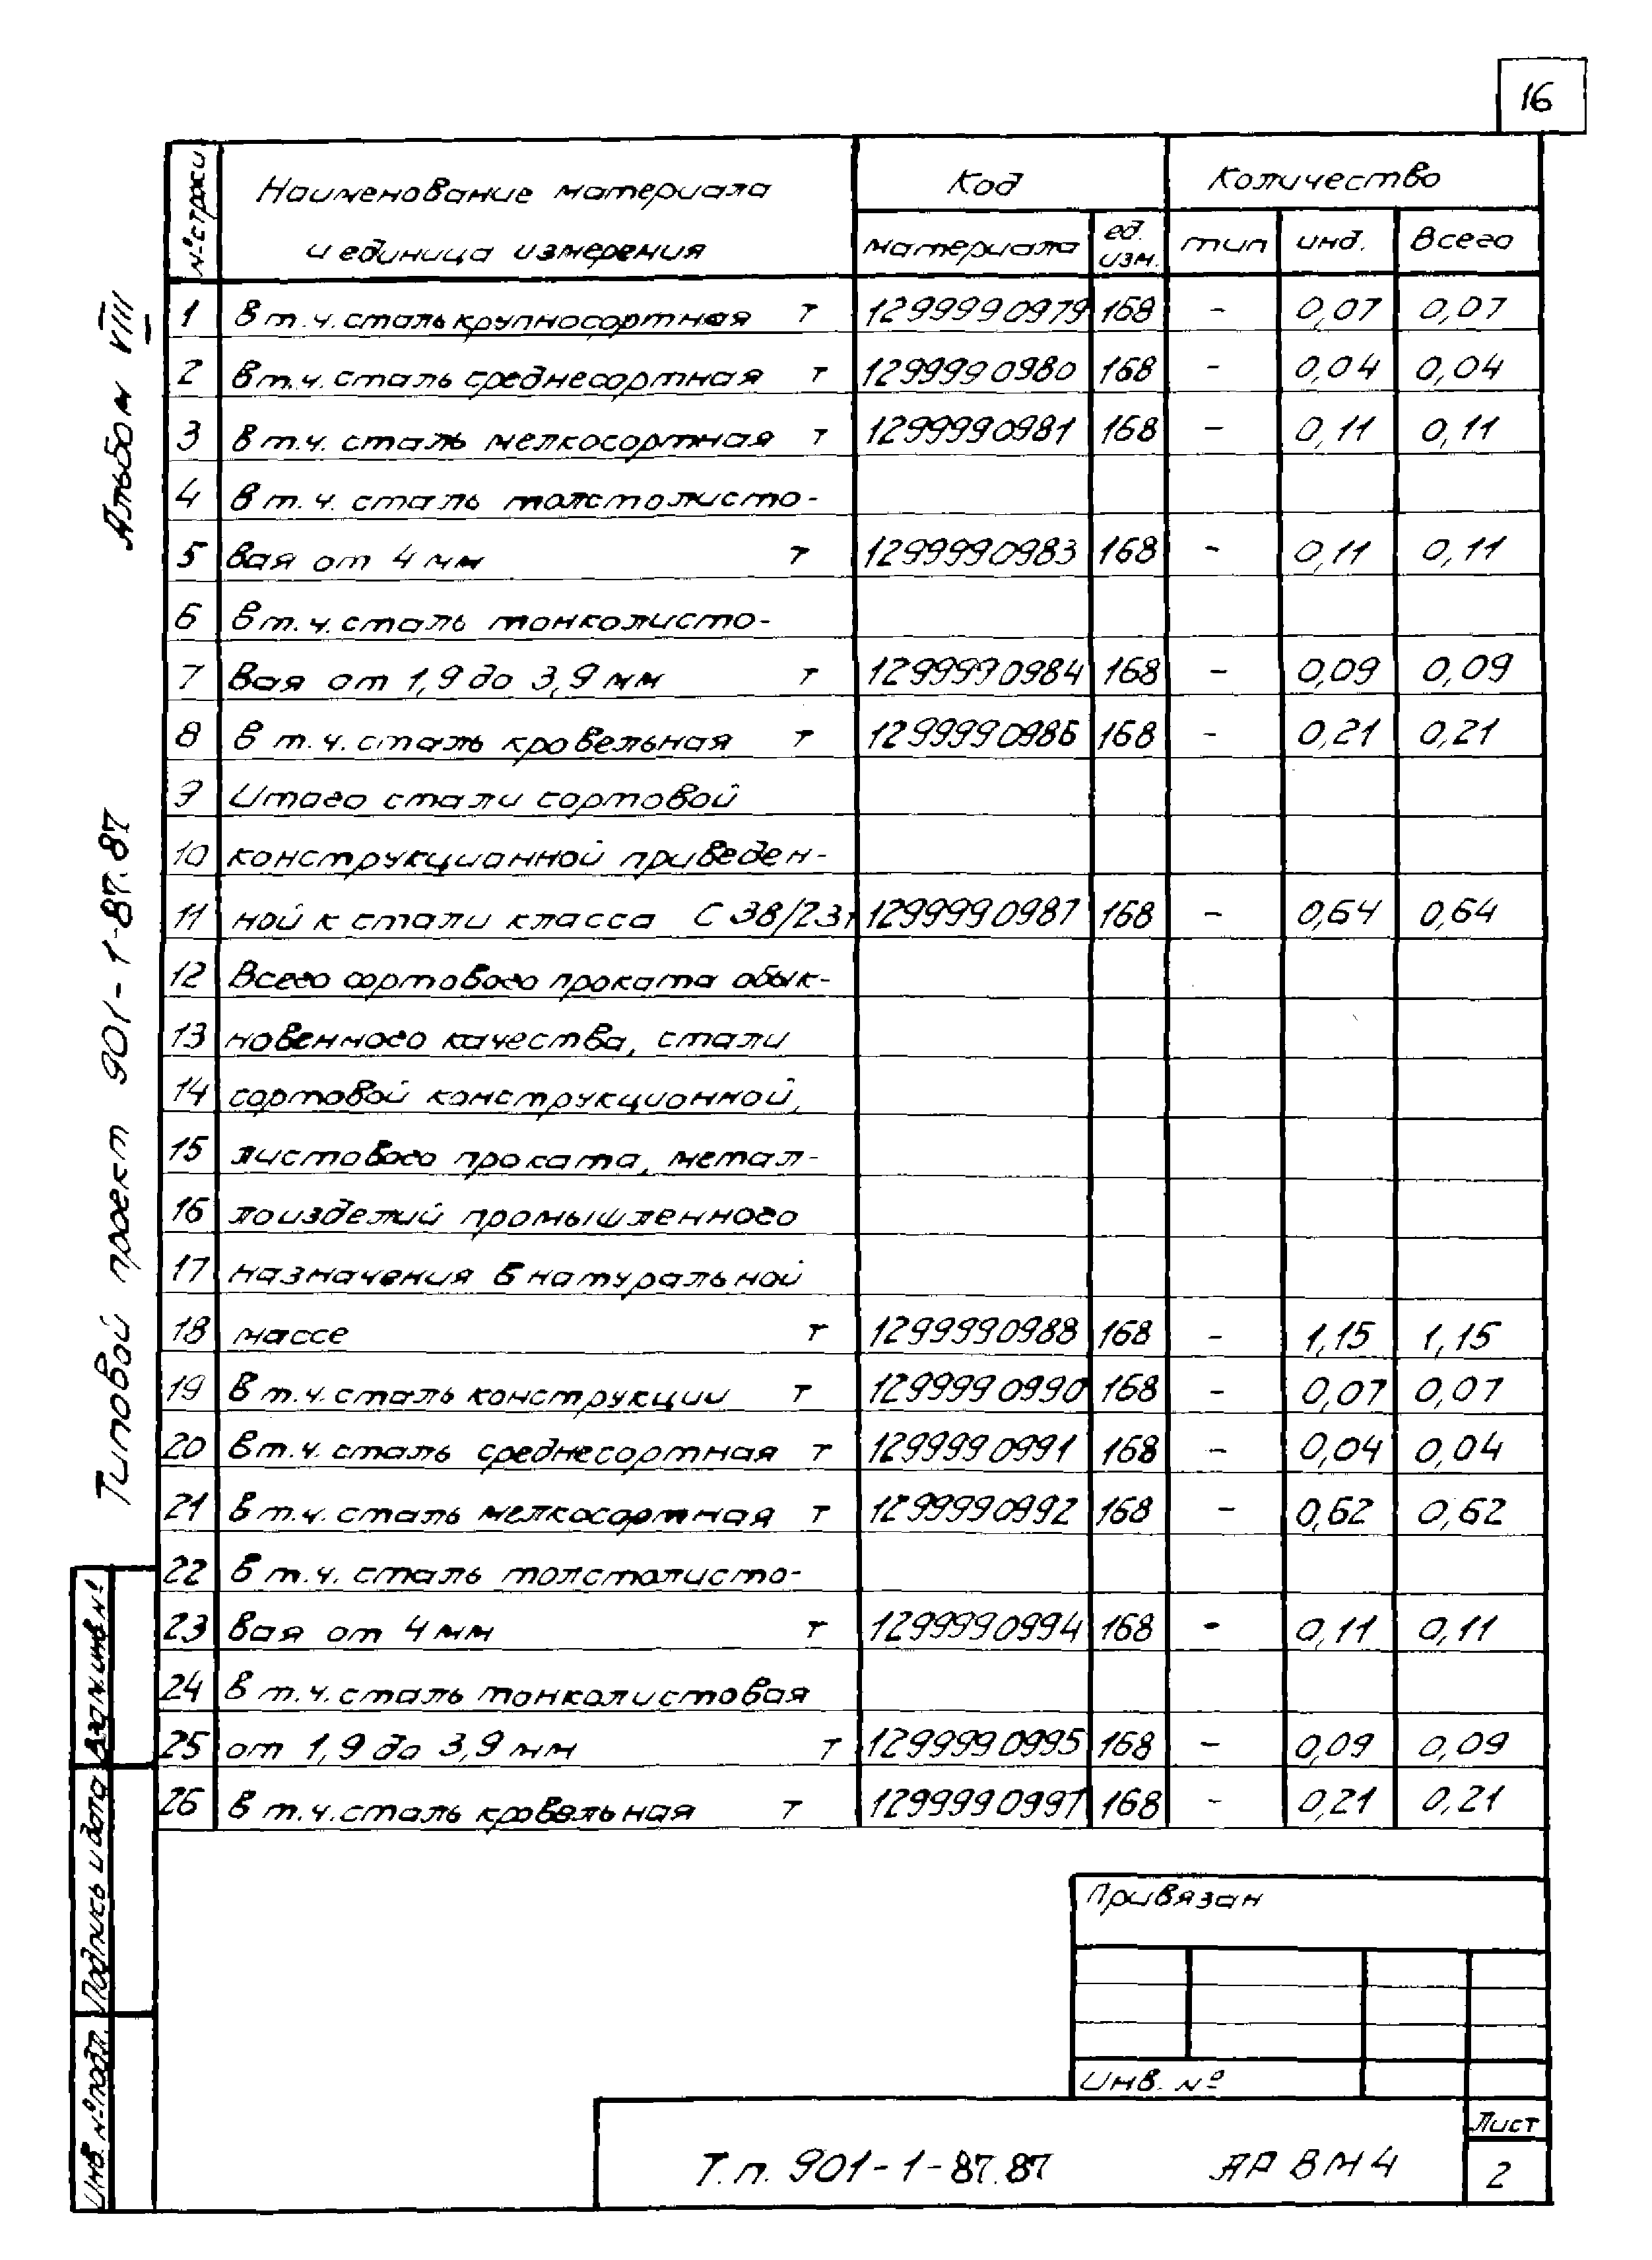 16
№ строки
Наименование материала и единица измерения
Код
Количество
материала
ед. изм.
тип
инд.
Всего
1 В т.ч. сталь крупносортная т 1299990979 168 - 0,07 0,07
2 В т.ч. сталь среднесортная т 1299990980 168 - 0,04 0,04
3 В т.ч. сталь мелкосортная т 1299990981 168 - 0,11 0,11
4 В т.ч. сталь толстолисто-
5 вая от 4 мм т 1299990983 168 - 0,11 0,11
6 В т.ч. сталь тонколисто-
7 вая от 1,9 до 3,9 мм т 1299990984 168 - 0,09 0,09
8 В т.ч. сталь кровельная т 1299990986 168 - 0,21 0,21
9 Итого стали сортовой
10 конструкционной приведен-
11 ной к стали класса С 38/23 т 1299990987 168 - 0,64 0,64
12 Всего сортового проката обык-
13 новенного качества, стали
14 сортовой конструкционной,
15 листового проката, метал-
16 лоизделий промышленного
17 назначения в натуральной
18 массе т 1299990988 168 - 1,15 1,15
19 В т.ч. сталь конструкции т 1299990990 168 - 0,07 0,07
20 В т.ч. сталь среднесортная т 1299990991 168 - 0,04 0,04
21 В т.ч. сталь мелкосортная т 1299990992 168 - 0,62 0,62
22 В т.ч. сталь толстолисто-
23 вая от 4 мм т 1299990994 168 - 0,11 0,11
24 В т.ч. сталь тонколистовая
25 от 1,9 до 3,9 мм т 1299990995 168 - 0,09 0,09
26 В т.ч. сталь кровельная т 1299990997 168 - 0,21 0,21
Альбом VIII
Типовой проект 901-1-87.87
Взам.инв.№
Подпись и дата
Инв. № подл.
Привязан
Инв. №
Т.п. 901-1-87.87 АР ВМ4
Лист
2